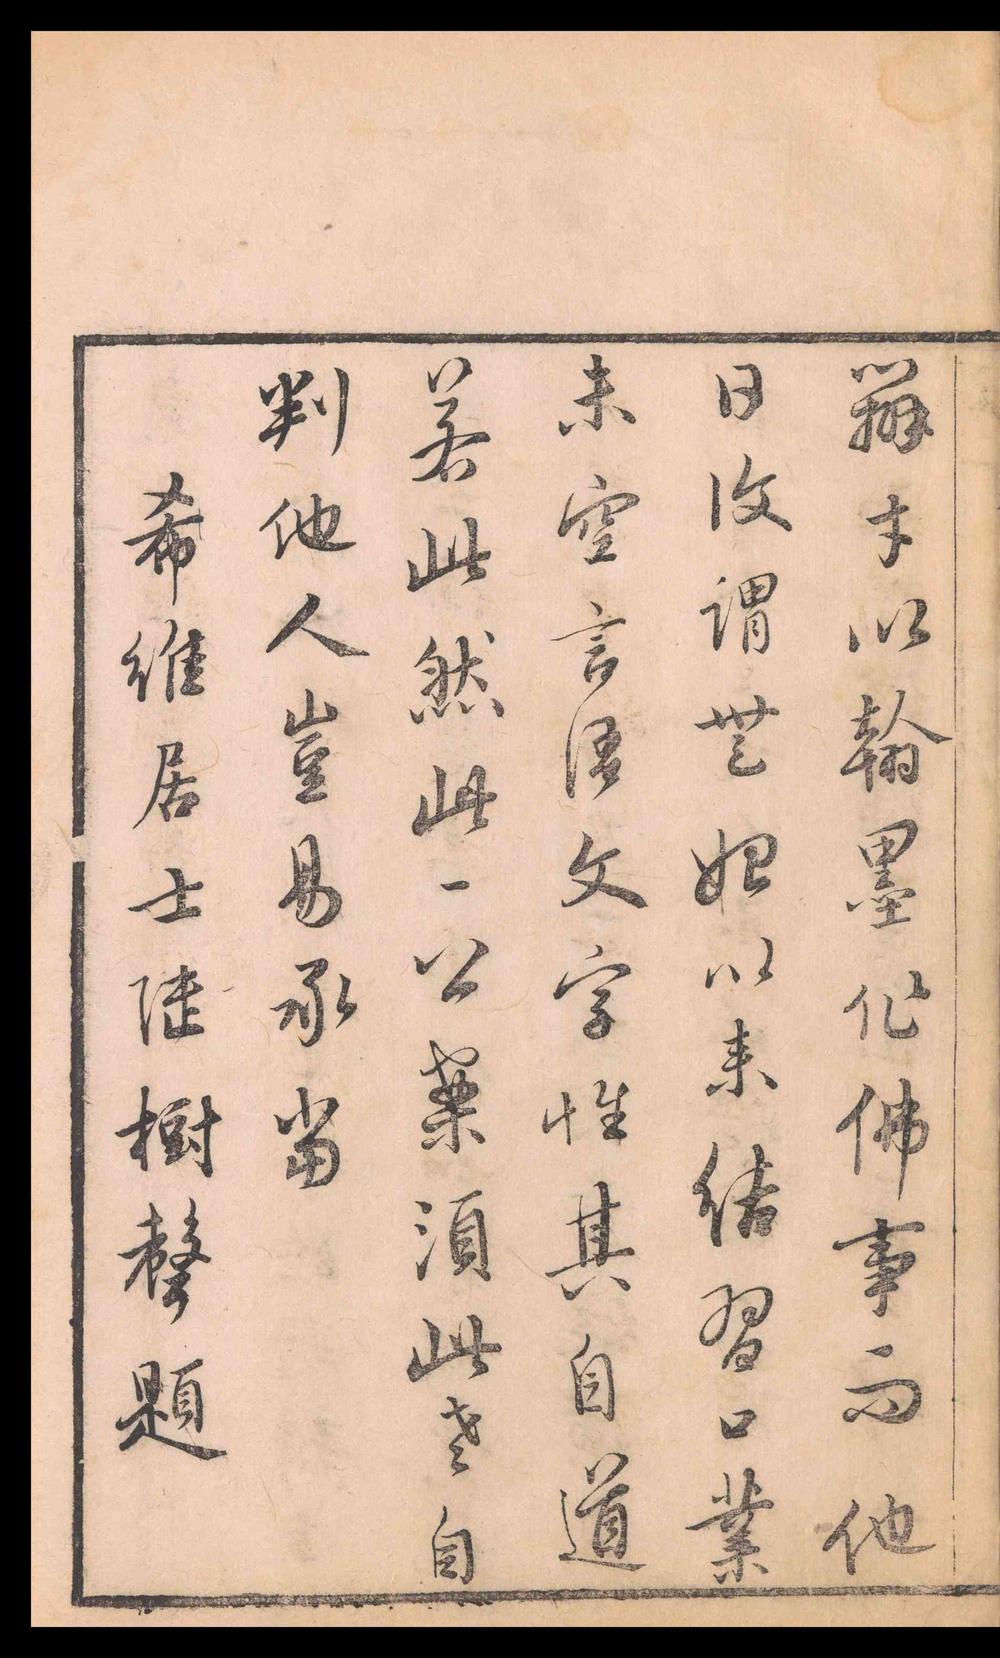 辯才以翰墨作佛事而他
日復謂無始以來結習口業
未空言語文字性其自道
若此然此一公案須此老自
判他人豈易承當
希維居士陸樹聲題